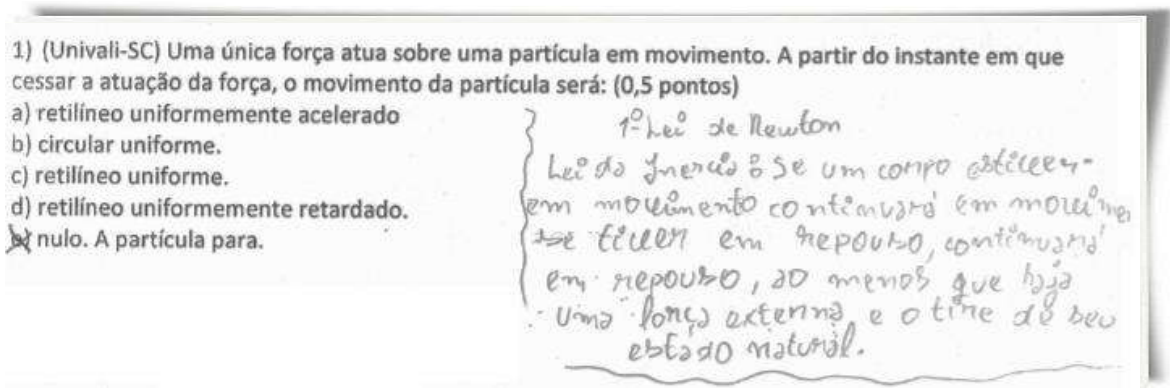 1) (Univali-SC) Uma única força atua sobre uma partícula em movimento. A partir do instante em que
cessar a atuação da força, o movimento da partícula será: (0,5 pontos)
a) retilíneo uniformemente acelerado
b) circular uniforme.
c) retilíneo uniforme.
d) retilíneo uniformemente retardado.
e) nulo. A partícula para.
1º Lei de Newton
Lei da Inercia: Se um corpo estiver
em movimento continuará em
se tiver em repouso, continuará
em repouso, ao menos que haja
uma força externa, e o tire de seu
estado natural.